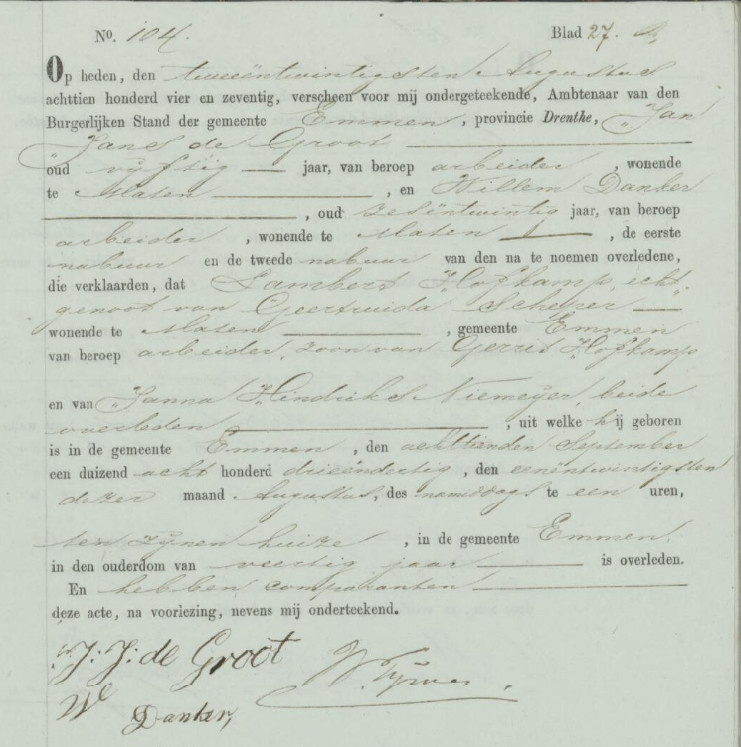 No. 104. Blad 27.
Op heden, den tweeëntwintigsten Augustus
achttien honderd vier en zeventig, verscheen voor mij ondergeteekende, Ambtenaar van den
Burgerlijken Stand der gemeente Emmen, provincie Drenthe, Jan
Jans de Groot
oud vijftig jaar, van beroep arbeider, wonende
te, en Willem Danker
, oud zesentwintig jaar, van beroep
arbeider, wonende te, de eerste
nabuur en de tweede nabuur van den na te noemen overledene,
die verklaarden, dat Lambert Hofkamp, echt-
genoot van Geertruida
wonende te, gemeente Emmen
van beroep arbeider, zoon van Gerrit Hofkamp
en van Janna Hindriks Niemeijer, beide
overleden, uit welke hij geboren
is in de gemeente Emmen, den achttienden September
een duizend acht honderd drieëndertig, den eenentwintigsten
dezer maand Augustus, des namiddags te een uren,
ten zijnen huize, in de gemeente Emmen.
in den ouderdom van veertig jaar is overleden.
En hebben comparanten
deze acte, na voorlezing, nevens mij onderteekend.
J: J: de Groot
W Danker,